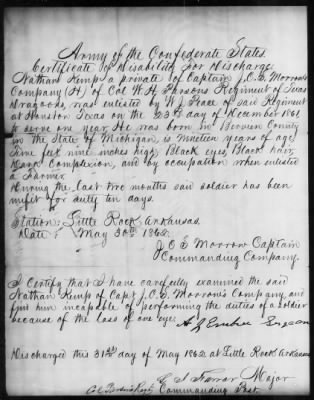 Army of the Confederate States
Certificate of Disability for Discharge
Nathan Kemp a private of Captain J.C.S. Morrow's
Company (H) of Col W.H. Parsons Regiment of Texas
Dragoons, was enlisted by W.J. Neace of said Regiment
at Houston Texas on the 23d day of December 1861
to serve one year. He was born in Berrien County
in the State of Michigan, is nineteen years of age
Five feet nine inches high, Black eyes, Black hair,
Dark Complexion, and by occupation when enlisted
a Farmer
During the last two months said soldier has been
unfit for duty ten days.
Station: Little Rock, Arkansas.
Date: May 30th 1862.
J.C.S. Morrow Captain
Commanding Company.
I certify that I have carefully examined the said
Nathan Kemp of Capt J.C.S. Morrow's Company, and
find him incapable of performing the duties of a soldier
because of the loss of one eye.
Surgeon
Discharged this 31st day of May 1862 at Little Rock Arkansas
Major
Commanding Post.